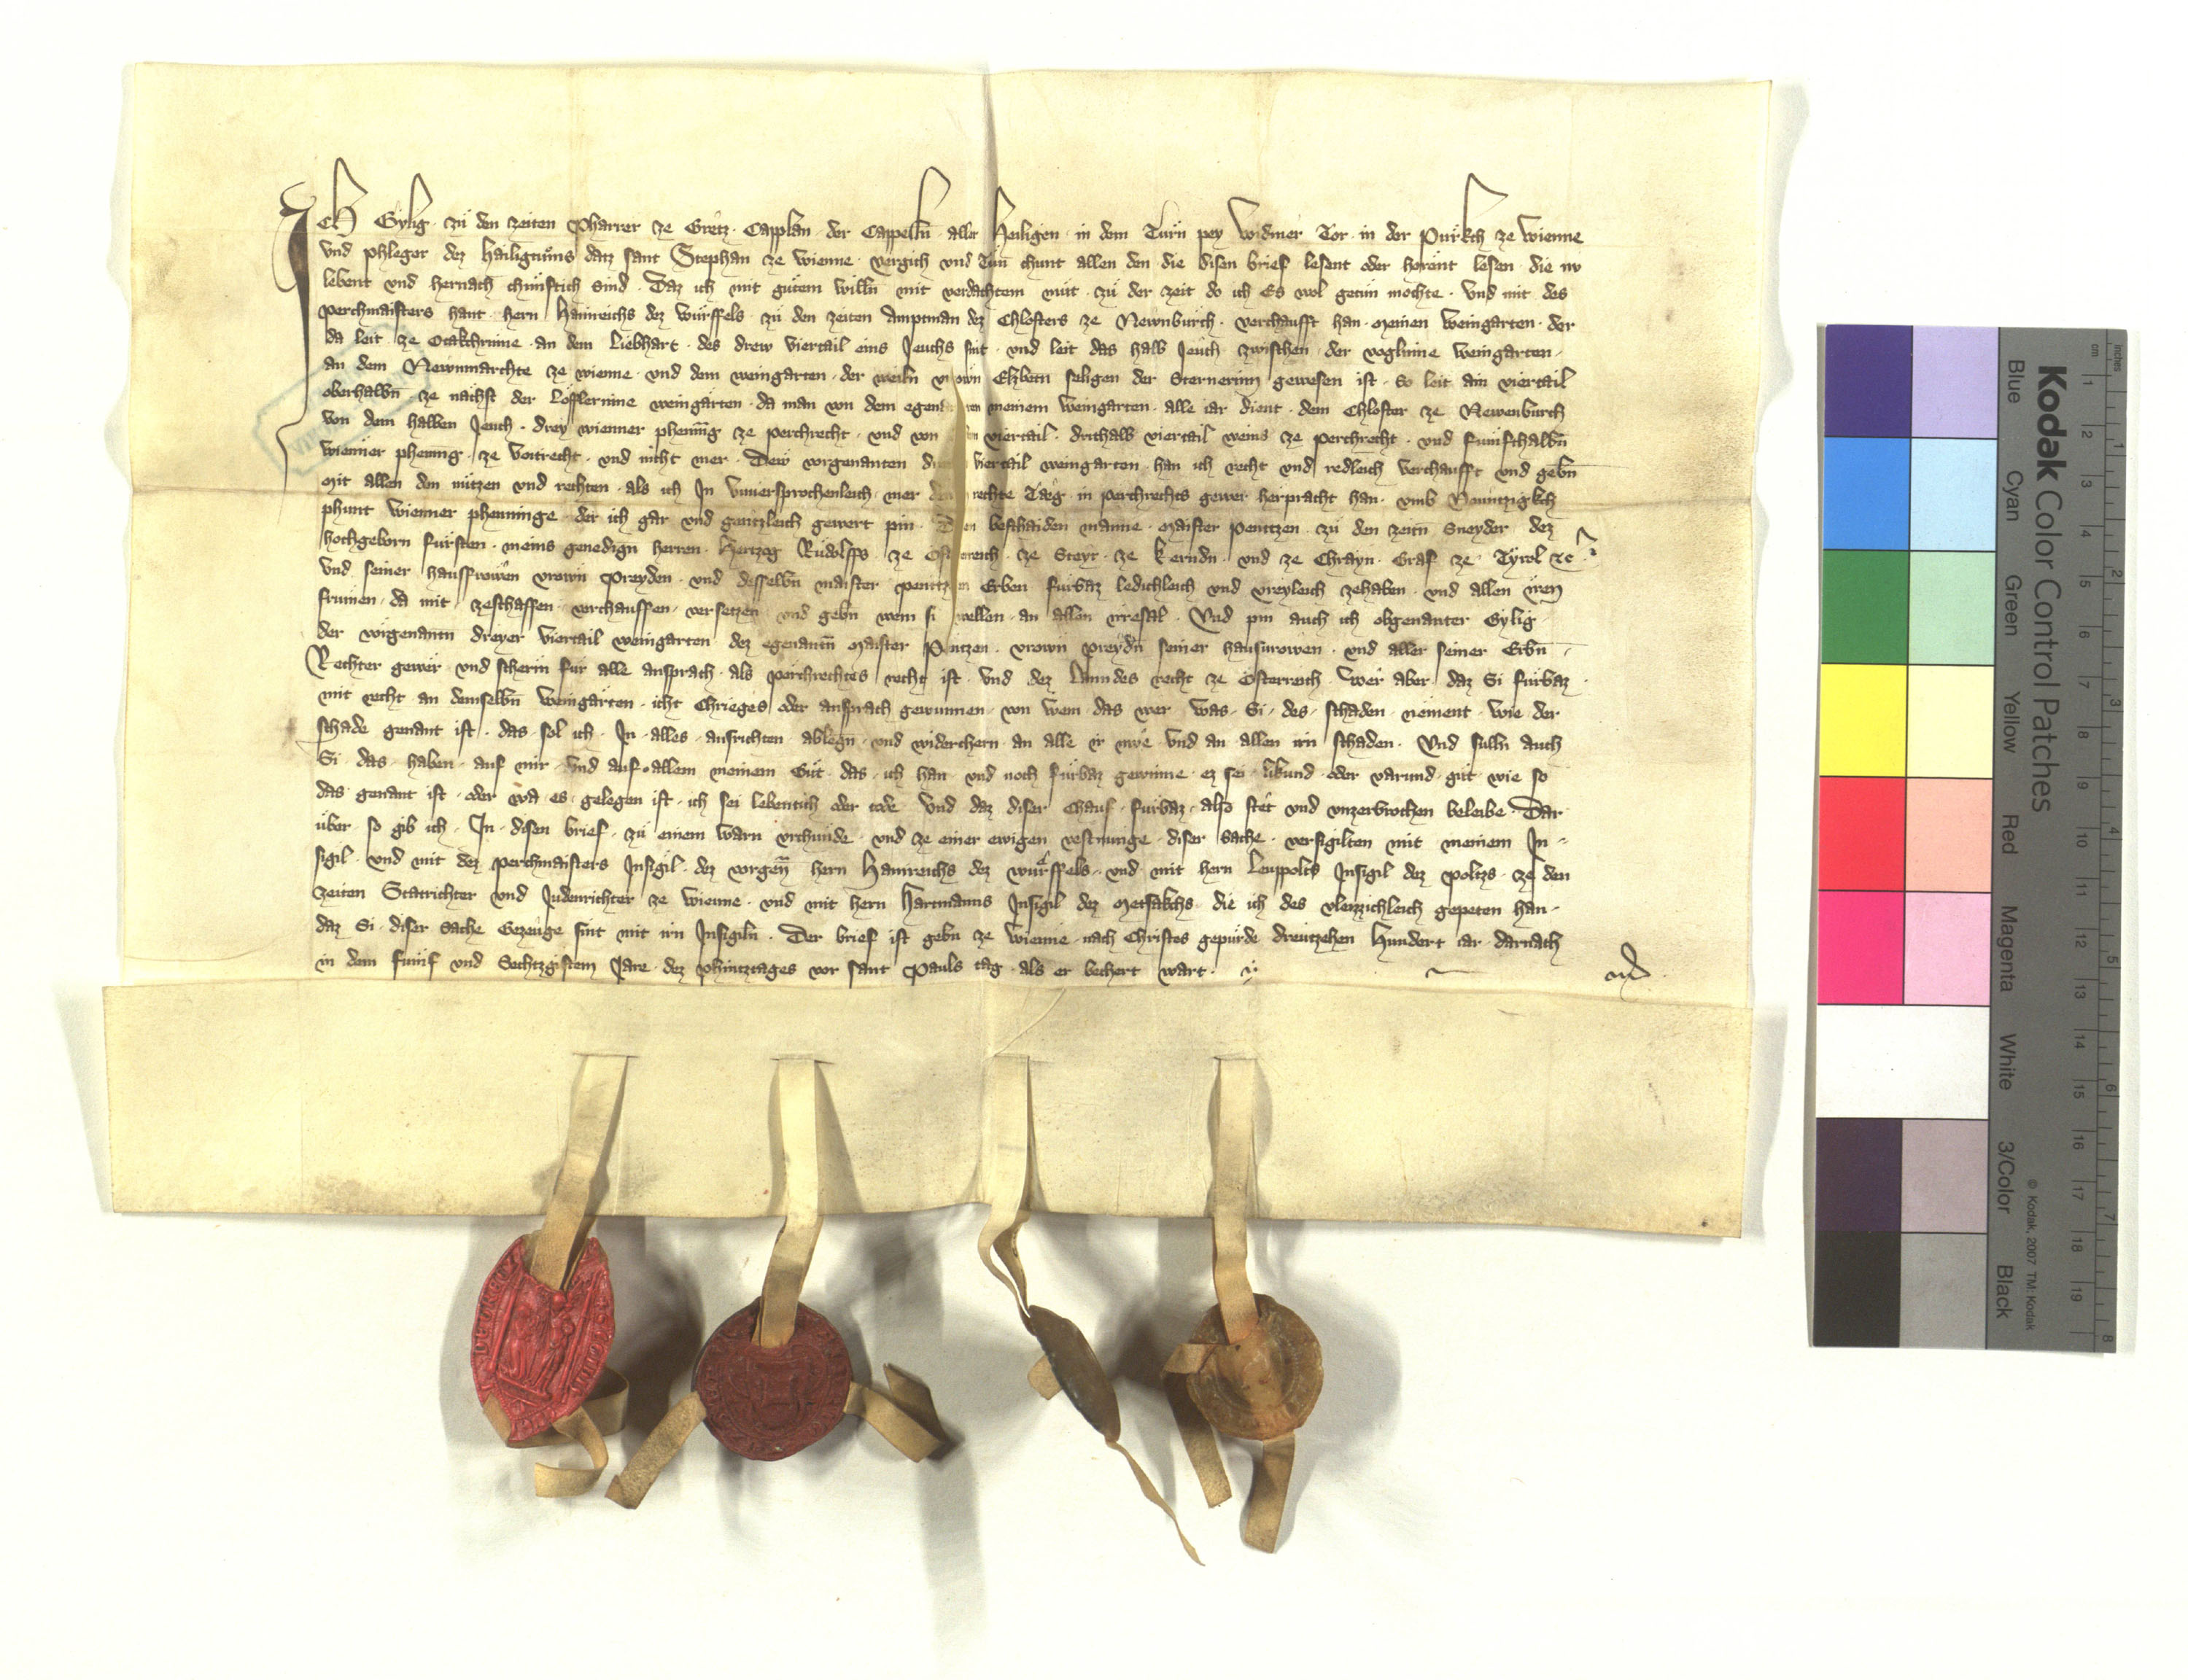 Ich Gylig zů den zeiten Pharrer ze Gretz Capplan der Cappelln aller Heiligen in dem Turn pey Widmer Tor in der Purkch ze Wienne
vnd phleger dez Hailigtůms datz sant Stephan ze Wienne vergich vnd tun chunt allen den die disen brief lesent oder horent lesen die nv
lebent vnd hernach chunftich sind Daz ich mit gutem willn mit verdachtem mut zů der zeit do ich es wol getun mochte vnd mit des
perchmaisters hant hern Hainreichs dez Wurffels zů den zeiten Amptman dez Chlosters ze Newnburch verchaufft han meinen weingarten der
da leit ze Otakchrinne an dem Liebhart des drew viertail eins Jeuchs sint vnd leit das halb Jeuch zwischen der voglinne weingarten
an dem Newnmarchte ze wienne vnd dem weingarten der weiln vrown Elzbetn seligen der Sternerinn gewesen ist so leit ain viertail
oberhalbn ze nachst der Lofflerinne weingarten da man von dem egen meinem weingarten alle iar dient dem Chloster ze Newenburch
von dem halben Jeuch drey wienner phennig ze perchrecht vnd von viertail drithalb viertail weins ze perchrecht vnd funfthalbn
wienner phennig ze voitrecht vnd nicht mer Dew vorgenanten viertail weingarten han ich recht vnd redleich verchaufft vnd gebn
mit allen den nützen vnd rechten als ich In vnuersprochenleich mer rechte Taeg in perchrechts gewer herpracht han vmb Neuntzigkch
phunt wienner phenninge der ich gar vnd gentzleich gewert pin beschaiden manne maister pentzen zů den zeitn Sneyder dez
hochgeborn fursten meins genedign herren Hertzog Růdolffs ze Osterreich ze Steyr ze Kerndn vnd ze Chrayn Graf ze Tyrol etc
vnd seiner hausfrowen vrown Preyden vnd desselbn maister pentzen Erben furbaz ledichleich vnd vreyleich zehaben vnd allen iren
frumen da mit zeschaffen verchauffen versetzen vnd gebn wem si wellen an allen irresal Vnd pin auch ich obgenanter Gylig
der vorgenantn dreyer viertail weingarten dez egenantn maister Pentzen vrown preydn seiner hausurowen vnd aller seiner Erbn
Rechter gewer vnd scherm fur alle ansprach als perchrechtes recht ist vnd dez Lanndes recht ze Osterreich wer aber daz Si furbaz
mit recht an demselbn weingarten icht Chrieges oder ansprach gewunnen von wem das wer was Si des schaden nement wie der
schade genant ist das sol ich In alles ausrichten ablegn vnd widerchern an alle ir mue vnd an allen irn schaden Vnd sulln auch
Si das haben auf mir vnd auf allem meinem Gut das ich han vnd noch furbaz gewinne ez sei erbund oder varund gut wie so
das genant ist oder wa es gelegen ist ich sei lebentich oder tode Vnd daz diser Chauf furbaz also stet vnd vnzerbrochen beleibe Dar
uber so gib ich In disen brief zů einem warn vrchunde vnd ze einer ewigen vestnunge diser sache versigilten mit meinem In
sigil vnd mit dez perchmaisters Insigil dez vorgen hern Hainreichs dez wurffels vnd mit hern Leuppolts Insigil dez Poltzs ze den
zeiten Statrichter vnd Judenrichter ze wienne vnd mit hern Hartmanns Insigil dez Metsakchs die ich des vleizzichleich gepeten han
daz Si diser sache Gezeuge sint mit irn Insigiln Der brief ist gebn ze Wienne nach Christes gepurde dreutzehen Hundert iar darnach
in dem funf vnd Sechtzgistem Jare dez phintztages vor sant Pauls tag als er bechert wart
Kodak Color Control Patches
Blue Cyan Green Yellow Red Magenta White 3/Color Black
© Kodak, 2007 TM: Kodak
inches 1 2 3 4 5 6 7 8
cm 1 2 3 4 5 6 7 8 9 10 11 12 13 14 15 16 17 18 19